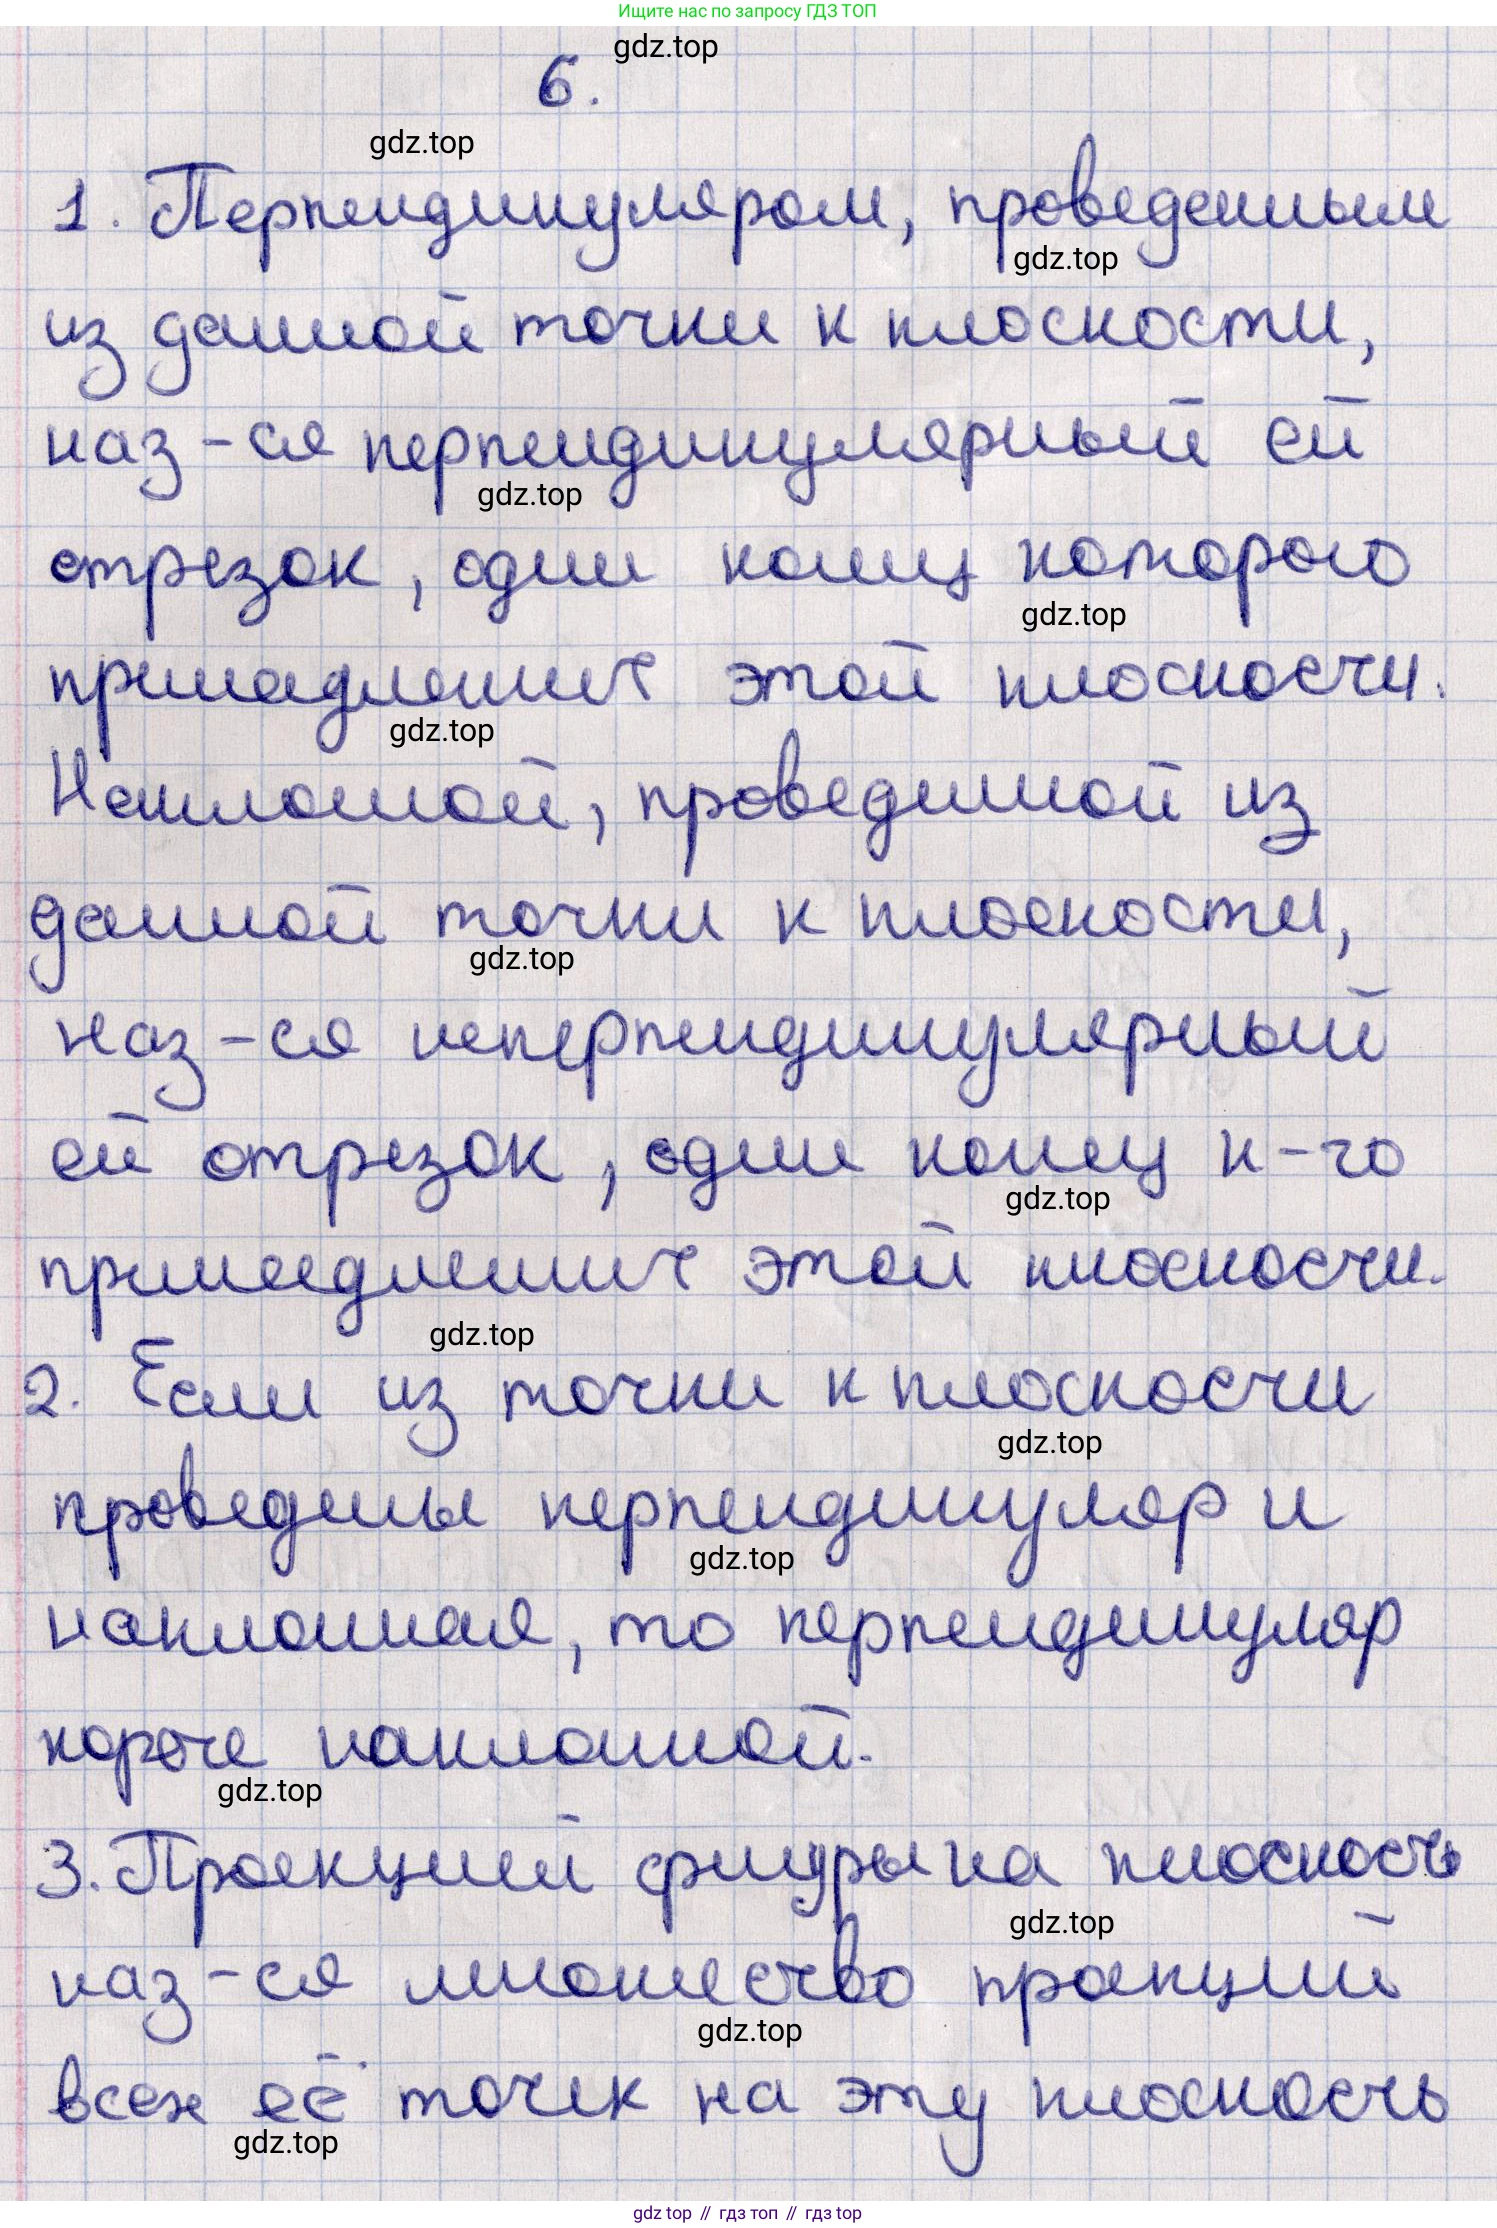 Ищите нас по запросу ГДЗ ТОП
gdz.top
6.
gdz.top
1. Перпендикуляром, проведенным
gdz.top
из данной точки к плоскости,
наз-ся перпендикулярный ей
gdz.top
отрезок, один конец которого
gdz.top
принадлежит этой плоскости.
gdz.top
Наклонной, проведенной из
данной точки к плоскости,
gdz.top
наз-ся неперпендикулярный
ей отрезок, один конец к-го
gdz.top
принадлежит этой плоскости.
gdz.top
2. Если из точки к плоскости
gdz.top
проведены перпендикуляр и
gdz.top
наклонная, то перпендикуляр
короче наклонной.
gdz.top
3. Проекцией фигуры на плоскость
gdz.top
наз-ся множество проекций
gdz.top
всех её точек на эту плоскость
gdz.top
gdz top // гдз топ // гдз top